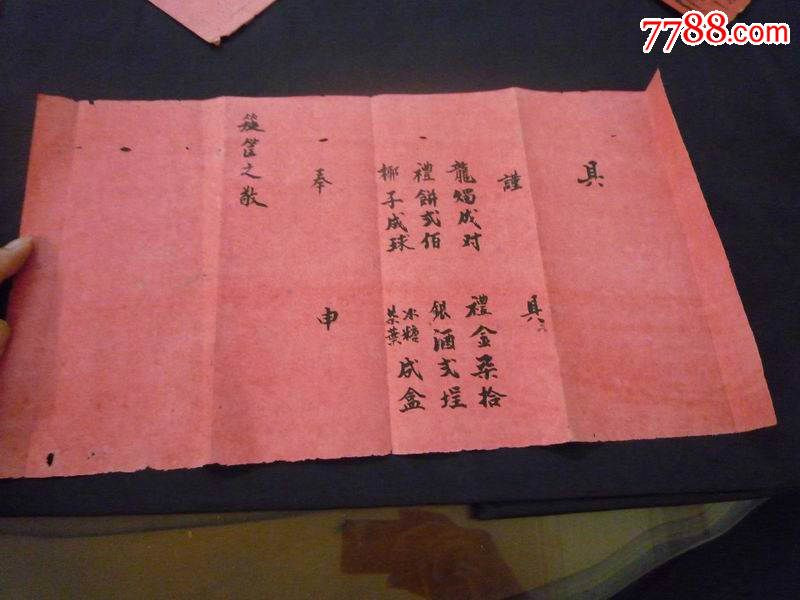 具
謹具
龍燭成対
禮金柒拾
禮餅弍佰
銀酒弍埕
椰子成球
冰糖
茶葉
成盒
奉申
筵筐之敬
7788.com